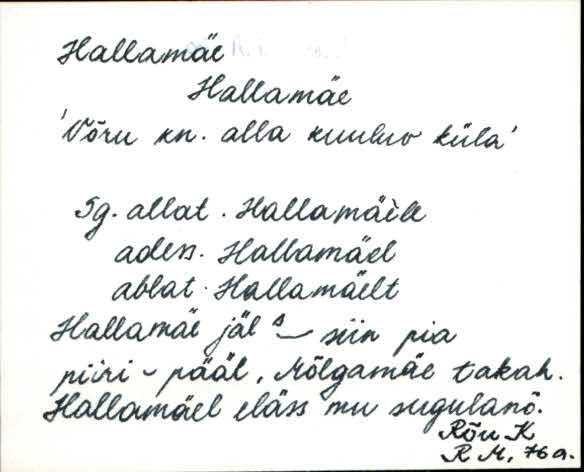 Hallamäe
Hallamäe
'Võru kn. alla kuuluv küla'
Sg. allat. Hallamäele
adess. Hallamäel
ablat. Hallamäelt
Hallamäe jäl siin pia
piiri pääl, Mõlgamäe takah.
Hallamäel eläss mu sugulanõ.
Rõu K
R M, 76 a.